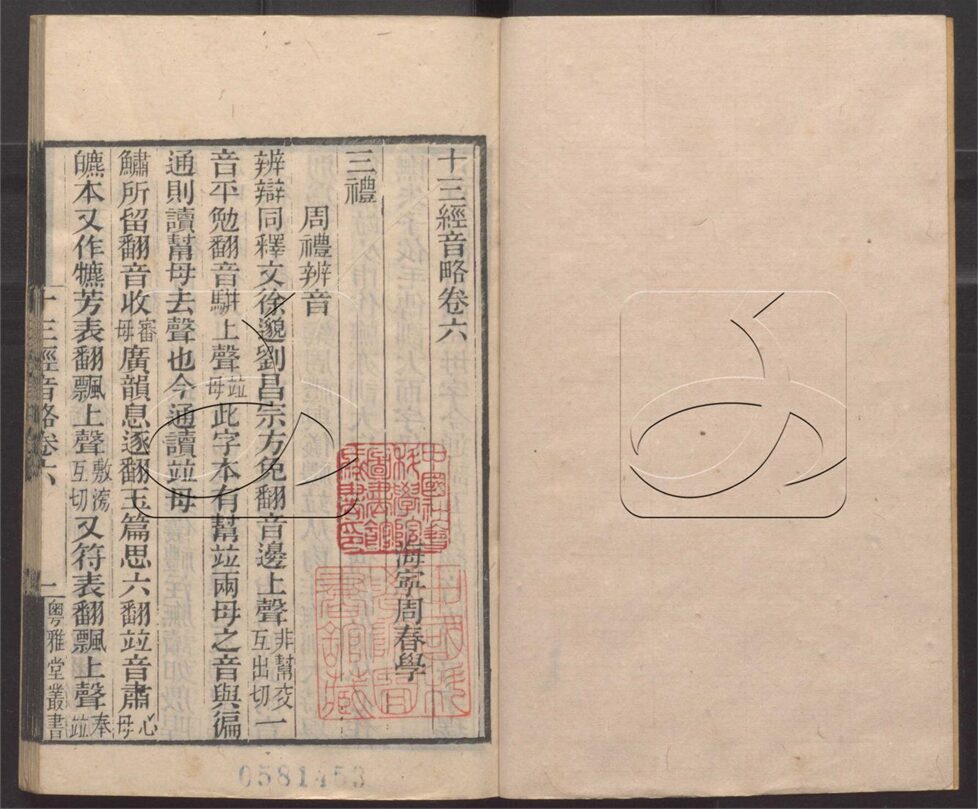 十三經音略卷六
海寧周春學
三禮
周禮辨音
辨辯同釋文徐邈劉昌宗方免翻音邊上聲非幫交互出切一
音平勉翻音駢上聲竝母此字本有幫竝兩母之音與徧
通則讀幫母去聲也今通讀竝母
鱐所留翻音收審母廣韻息逐翻玉篇思六翻竝音肅心母
皫本又作犥芳表翻飄上聲敷滂互切又符表翻飄上聲奉竝
十三經音略卷六
一
粵雅堂叢書
0581453